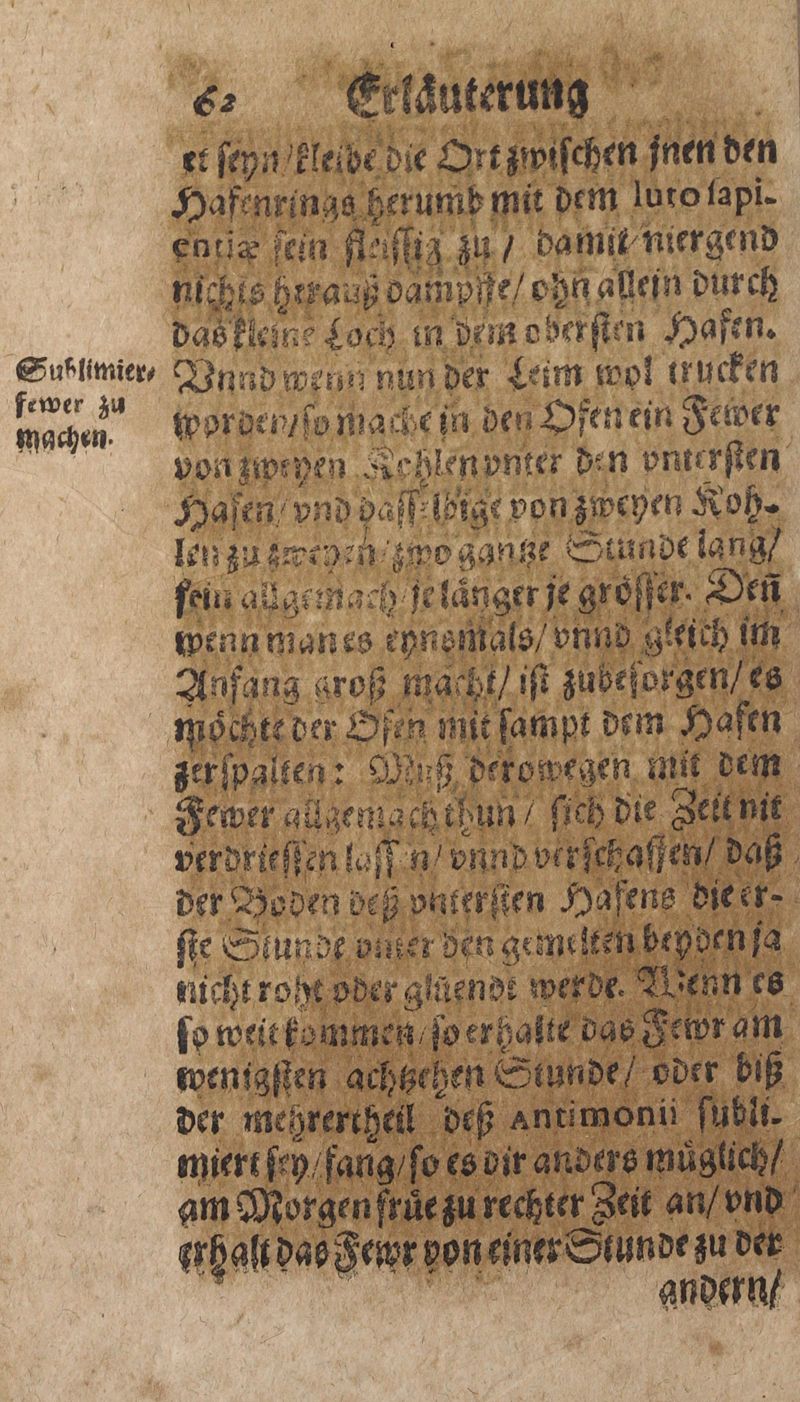 62 Erläuterung
et ſeyn / kleibe die Ort zwiſchen jnen den
Hafenrings herumb mit dem luto ſapi-
entiæ fein fleiſſig zu / damit niergend
nichts herauß dampffe / ohn allein durch
das kleine Loch in dem oberſten Hafen.
Sublimier-
fewer zu
machen.
Vnnd wenn nun der Leim wol trucken
worden / ſo mache in den Ofen ein Fewer
von zweyen Kohlen vnter den vnterſten
Hafen / vnd daſſelbige von zweyen Koh-
len zu zweyen / zwo gantze Stunde lang /
fein allgemach je länger je gröſſer. Deñ
wenn man es eynsmals / vnnd gleich im
Anfang groß macht / iſt zubeſorgen / es
möchte der Ofen mit ſampt dem Hafen
zerſpalten: Muß derowegen mit dem
Fewer allgemach thun / ſich die Zeit nit
verdrieſſen laſſen / vnnd verſchaffen / daß
der Boden deß vnterſten Hafens die er-
ſte Stunde vnter den gemelten beyden ja
nicht roht oder glüendt werde. Wenn es
ſo weit kommen / ſo erhalte das Fewr am
wenigſten achtzehen Stunde / oder biß
der mehrertheil deß Antimonii ſubli-
miert ſey / fang / ſo es dir anders müglich /
am Morgen früe zu rechter Zeit an / vnd
erhalt das Fewr von einer Stunde zu der
andern /